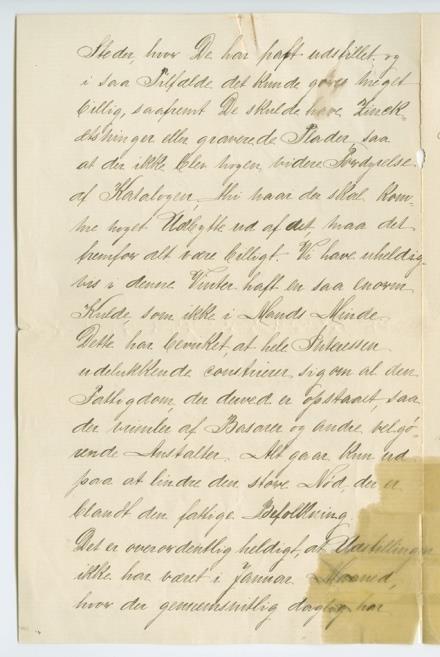 Steder, hvor De har haft udstillet, og
i saa Tilfælde det kunde gøres meget
billig, saafremt De skulde have Zinck-
ætsninger eller graverede Plader, saa
at der ikke blev nogen videre Fordyrelse
af Katalogen, thi naar der skal kom-
me noget Udbytte ud af det, maa det
fremfor alt være billigt. Vi have uheldig-
vis i denne Vinter haft en saa enorm
Kulde som ikke i Mands Minde
Dette har bevirket, at hele Interessen
udelukkende
sig om al den
Fattigdom, der derved er opstaaet, saa
der vrimler af Basarer og andre velgø-
rende Anstalter. Alt gaar kun ud
paa at lindre den store Nød, der er
blandt den fattige Befolkning.
Det er overordentlig heldigt, at Udstillingen
ikke har været i Januar Maaned,
hvor der gennemsnitlig daglig har